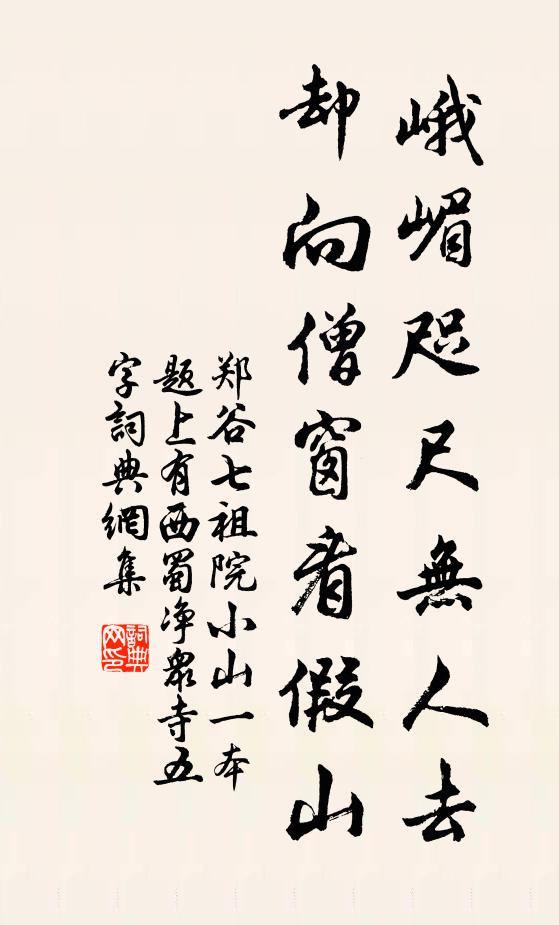 峨嵋咫尺無人去
却向僧窗看假山
郑谷七祖院小山一本
题上有西蜀净眾寺五
字詞典網集
詞典
网印